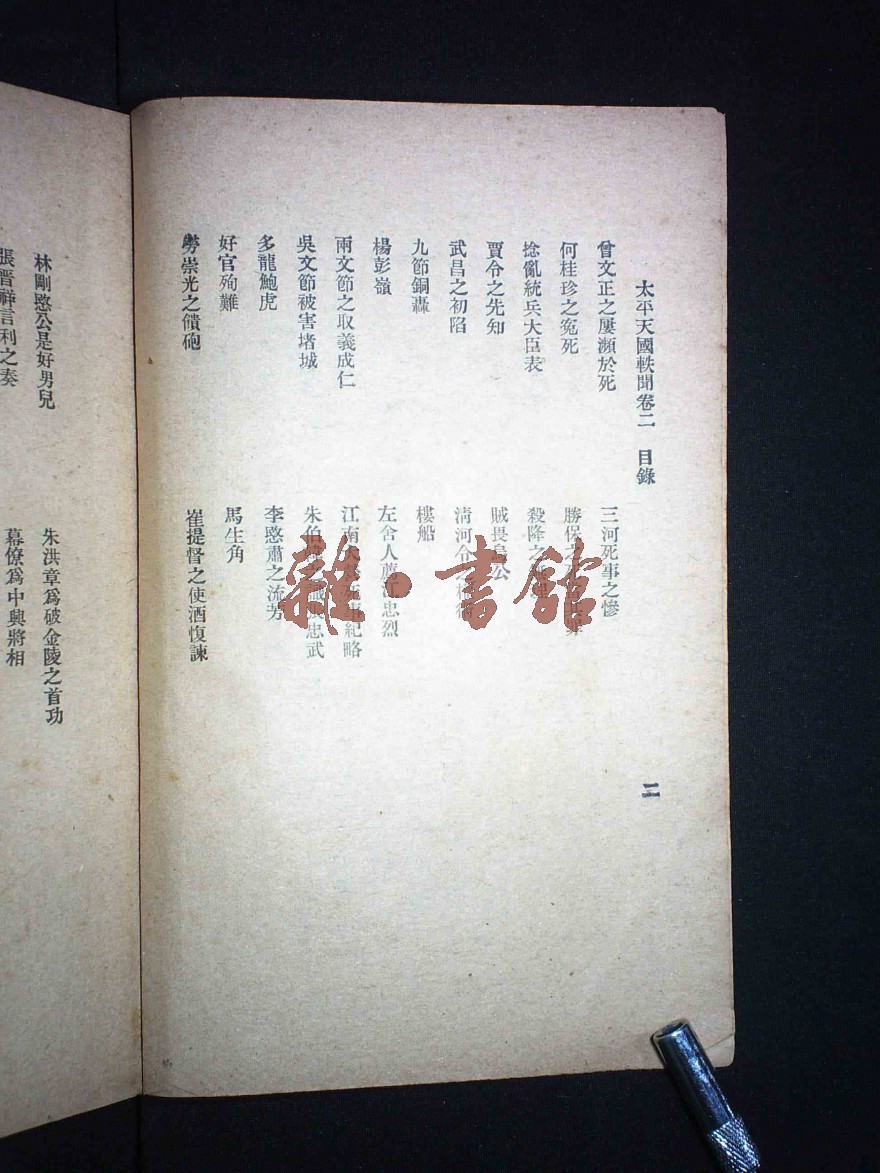 太平天國軼聞卷二　目錄
二
曾文正之屢瀕於死
三河死事之慘
何桂珍之冤死
勝保之
捻亂統兵大臣表
殺降之
賈令之先知
賊畏烏公
武昌之初陷
清河令之
九節銅轟
樓船
楊彭嶺
左舍人薦江忠烈
兩文節之取義成仁
江南大營死事紀略
吳文節被害堵城
朱伯 忠武
多龍鮑虎
李愍肅之流芳
好官殉難
馬生角
勞崇光之饋砲
崔提督之使酒愎諫
林剛愍公是好男兒
朱洪章爲破金陵之首功
張晋祥言利之奏
幕僚爲中興將相
雜·書館